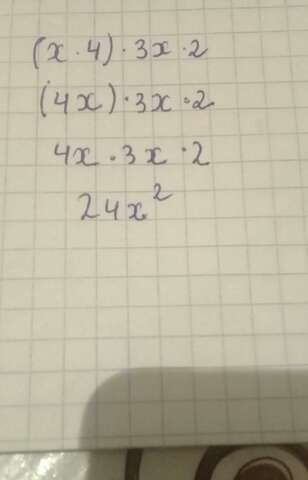 (x · 4) · 3x · 2
(4x) · 3x · 2
4x · 3x · 2
24x²